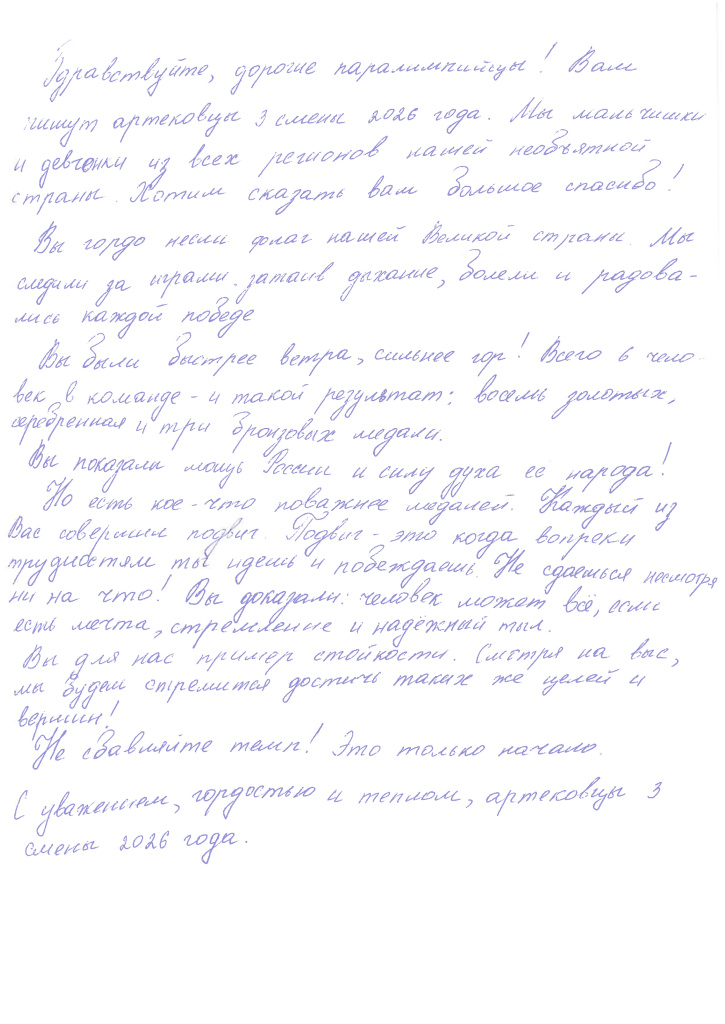 Здравствуйте, дорогие паралимпийцы! Вам
пишут артековцы 3 смены 2026 года. Мы мальчишки
и девчонки из всех регионов нашей необъятной
страны. Хотим сказать вам большое спасибо!
Вы гордо несли флаг нашей Великой страны. Мы
следили за играми затаив дыхание, болели и радова-
лись каждой победе
Вы были быстрее ветра, сильнее гор! Всего 6 чело-
век в команде - и такой результат: восемь золотых,
серебренная и три бронзовых медали.
Вы показали мощь России и силу духа её народа!
Но есть кое-что поважнее медалей. Каждый из
Вас совершил подвиг. Подвиг - это когда вопреки
трудностям ты идешь и побеждаешь. Не сдаешься несмотря
ни на что! Вы доказали: человек может всё, если
есть мечта, стремление и надёжный тыл.
Вы для нас пример стойкости. Смотря на вас,
мы будем стремится достичь таких же целей и
вершин!
Не сбавляйте темп! Это только начало.
С уважением, гордостью и теплом, артековцы 3
смены 2026 года.